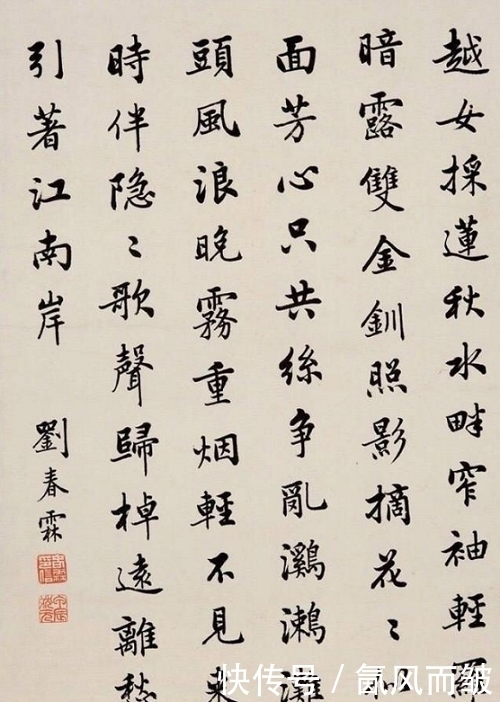 越女採蓮秋水畔窄袖輕羅
暗露雙金釧照影摘花〻似
面芳心只共絲争亂鸂鶒灘
頭風浪晚霧重烟輕不見来
時伴隐〻歌聲歸棹遠離愁
引著江南岸
劉春霖
快传号 / 氤风而皱